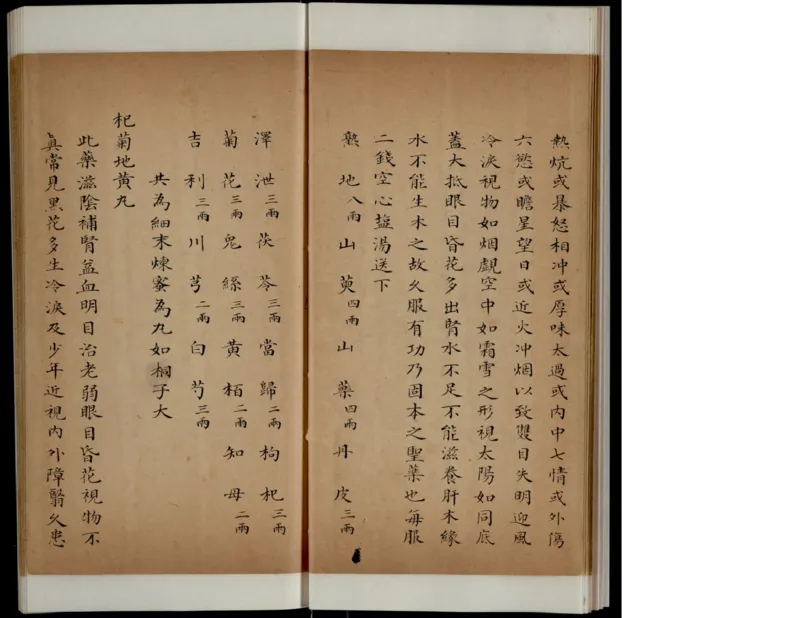 熱炕或暴怒相冲或厚味太過或內中七情或外傷
六慾或瞻星望日或近火冲烟以致雙目失明迎風
冷淚視物如烟覷空中如霜雪之形視太陽如同底
蓋大抵眼目昏花多出腎水不足不能滋養肝木緣
水不能生木之故久服有功乃固本之聖藥也每服
二錢空心盐湯送下
熟地八兩山萸四兩山藥四兩丹皮三兩
澤泄三兩茯苓三兩當歸二兩枸杞三兩
菊花三兩兔絲三兩黃栢二兩知母二兩
吉利三兩川芎二兩白芍三兩
共為細末煉蜜為丸如桐子大
杞菊地黃丸
此藥滋陰補腎益血明目治老弱眼目昏花視物不
真常見黑花多生冷淚及少年近視內外障翳久患